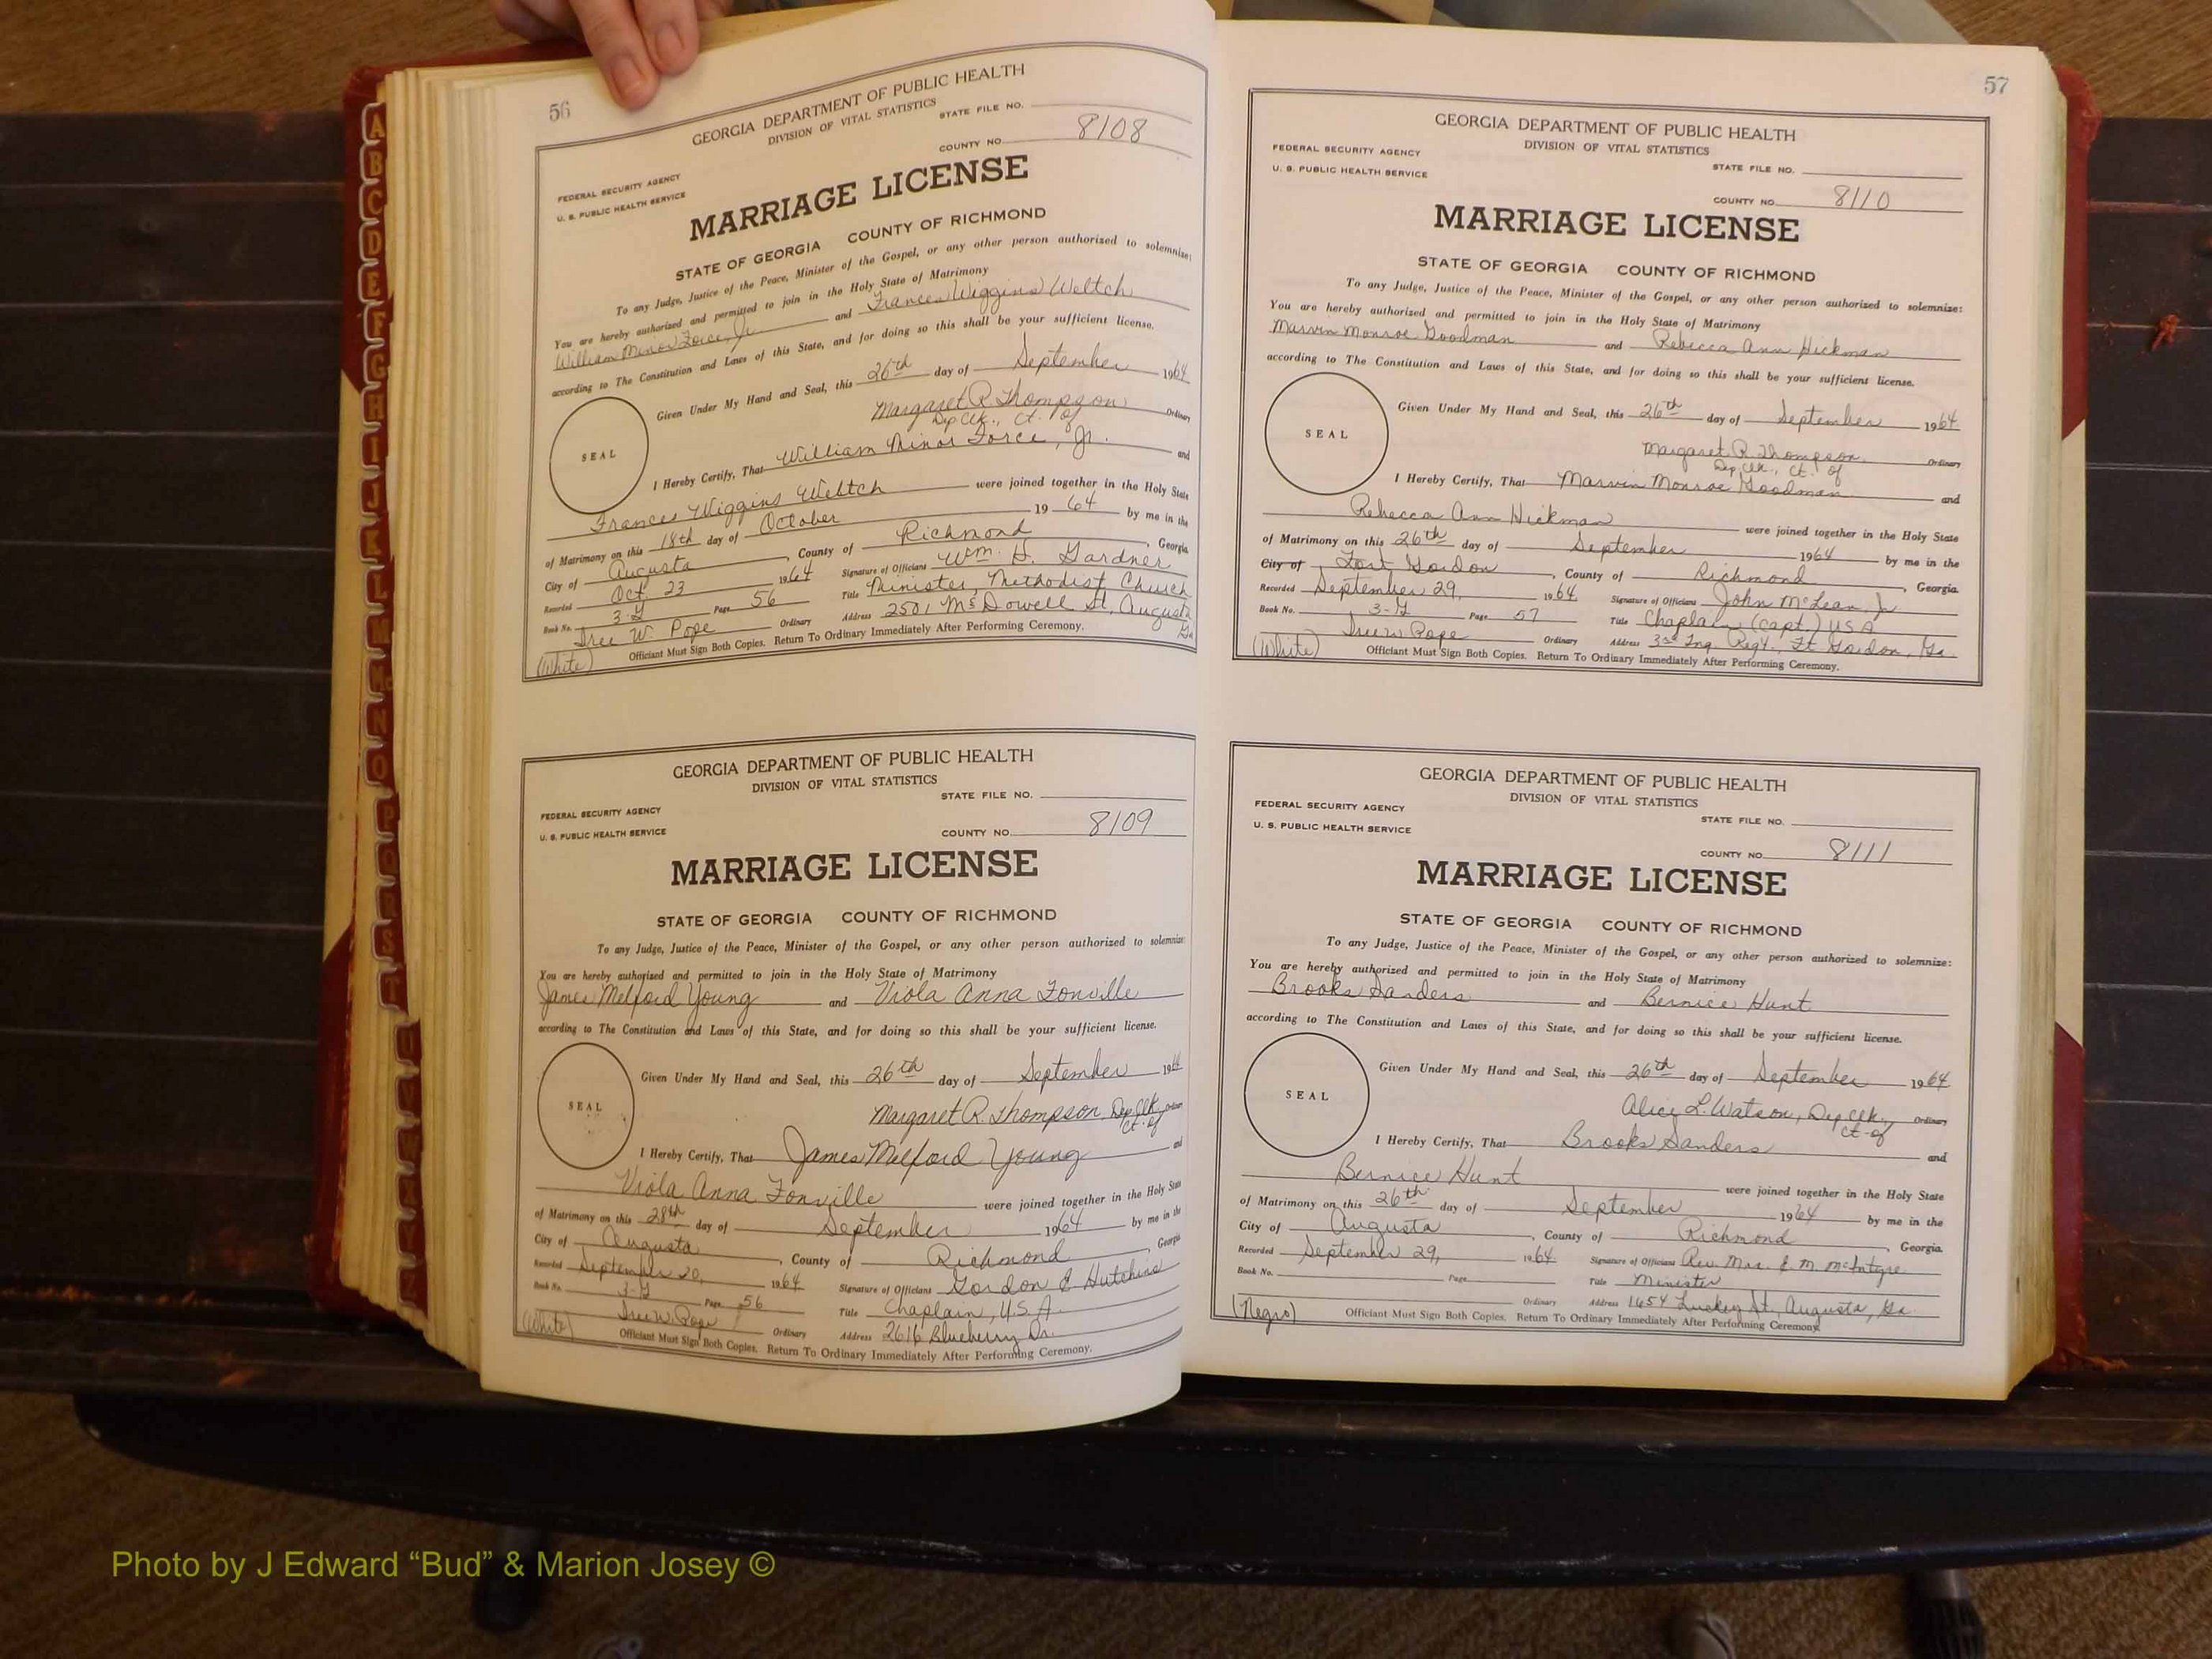 56
GEORGIA DEPARTMENT OF PUBLIC HEALTH
DIVISION OF VITAL STATISTICS
STATE FILE NO.
COUNTY NO. 8108
FEDERAL SECURITY AGENCY
U. S. PUBLIC HEALTH SERVICE
MARRIAGE LICENSE
STATE OF GEORGIA COUNTY OF RICHMOND
To any Judge, Justice of the Peace, Minister of the Gospel, or any other person authorized to solemnize:
You are hereby authorized and permitted to join in the Holy State of Matrimony
William Minor Force, Jr. and Frances Wiggins Weltch
according to The Constitution and Laws of this State, and for doing so this shall be your sufficient license.
Given Under My Hand and Seal, this 26th day of September 1964
Margaret R. Thompson Ordinary
Dep Clk., Ct. of
SEAL
I Hereby Certify, That William Minor Force, Jr. and
Frances Wiggins Weltch were joined together in the Holy State
of Matrimony on this 18th day of October 19 64 by me in the
City of Augusta, County of Richmond, Georgia
Recorded Oct. 23 1964 Signature of Officiant Wm. H. Gardner
Book No. 3-Y Page 56 Title Minister, Methodist Church
Iree W. Pope Ordinary Address 2501 McDowell St, Augusta Ga
(White) Officiant Must Sign Both Copies. Return To Ordinary Immediately After Performing Ceremony.
GEORGIA DEPARTMENT OF PUBLIC HEALTH
DIVISION OF VITAL STATISTICS
STATE FILE NO.
FEDERAL SECURITY AGENCY
U. S. PUBLIC HEALTH SERVICE
COUNTY NO. 8109
MARRIAGE LICENSE
STATE OF GEORGIA COUNTY OF RICHMOND
To any Judge, Justice of the Peace, Minister of the Gospel, or any other person authorized to solemnize:
You are hereby authorized and permitted to join in the Holy State of Matrimony
James Melford Young and Viola Anna Fonville
according to The Constitution and Laws of this State, and for doing so this shall be your sufficient license.
Given Under My Hand and Seal, this 26th day of September 1964
Margaret R. Thompson, Dep Clk, Ordinary
Ct. of
SEAL
I Hereby Certify, That James Melford Young and
Viola Anna Fonville were joined together in the Holy State
of Matrimony on this 28th day of September 1964 by me in the
City of Augusta, County of Richmond, Georgia
Recorded September 30, 1964 Signature of Officiant Gordon E Hutchins
Book No. 3-Y Page 56 Title Chaplain, U.S.A.
Iree W. Pope Ordinary Address 2616 Blueberry Dr.
(White) Officiant Must Sign Both Copies. Return To Ordinary Immediately After Performing Ceremony.
57
GEORGIA DEPARTMENT OF PUBLIC HEALTH
DIVISION OF VITAL STATISTICS
FEDERAL SECURITY AGENCY
U. S. PUBLIC HEALTH SERVICE
STATE FILE NO.
COUNTY NO. 8110
MARRIAGE LICENSE
STATE OF GEORGIA COUNTY OF RICHMOND
To any Judge, Justice of the Peace, Minister of the Gospel, or any other person authorized to solemnize:
You are hereby authorized and permitted to join in the Holy State of Matrimony
Marvin Monroe Goodman and Rebecca Ann Hickman
according to The Constitution and Laws of this State, and for doing so this shall be your sufficient license.
Given Under My Hand and Seal, this 26th day of September 1964
Margaret R. Thompson Ordinary
Dep Clk., Ct. of
SEAL
I Hereby Certify, That Marvin Monroe Goodman and
Rebecca Ann Hickman were joined together in the Holy State
of Matrimony on this 26th day of September 1964 by me in the
City of Fort Gordon, County of Richmond, Georgia.
Recorded September 29, 1964 Signature of Officiant John McLean, Jr
Book No. 3-Y Page 57 Title Chaplain (Capt.) USA
Iree W. Pope Ordinary Address 3rd Tng Regt., Ft Gordon, Ga
(White) Officiant Must Sign Both Copies. Return To Ordinary Immediately After Performing Ceremony.
GEORGIA DEPARTMENT OF PUBLIC HEALTH
DIVISION OF VITAL STATISTICS
FEDERAL SECURITY AGENCY
U. S. PUBLIC HEALTH SERVICE
STATE FILE NO.
COUNTY NO. 8111
MARRIAGE LICENSE
STATE OF GEORGIA COUNTY OF RICHMOND
To any Judge, Justice of the Peace, Minister of the Gospel, or any other person authorized to solemnize:
You are hereby authorized and permitted to join in the Holy State of Matrimony
Brooks Sanders and Bernice Hunt
according to The Constitution and Laws of this State, and for doing so this shall be your sufficient license.
Given Under My Hand and Seal, this 26th day of September 1964
Alice L. Watson, Dep Clk., Ordinary
Ct. of
SEAL
I Hereby Certify, That Brooks Sanders and
Bernice Hunt were joined together in the Holy State
of Matrimony on this 26th day of September 1964 by me in the
City of Augusta, County of Richmond, Georgia.
Recorded September 29, 1964 Signature of Officiant Rev. Mrs. E. M. McIntyre
Book No. Page Title Minister
Ordinary Address 1654 Luckey St., Augusta, Ga.
(Negro) Officiant Must Sign Both Copies. Return To Ordinary Immediately After Performing Ceremony.
Photo by J Edward “Bud” & Marion Josey ©